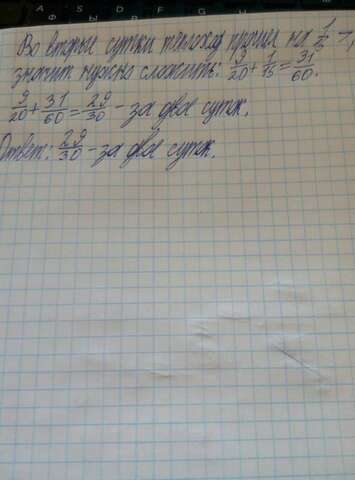 A S D F G H
Ф Ы
Во вторые сутки теплоход прошел на
значит нужно сложить: 9/20 + 1/15 = 31/60.
9/20 + 31/60 = 29/30 - за двое суток.
Ответ: 29/30 - за двое суток.